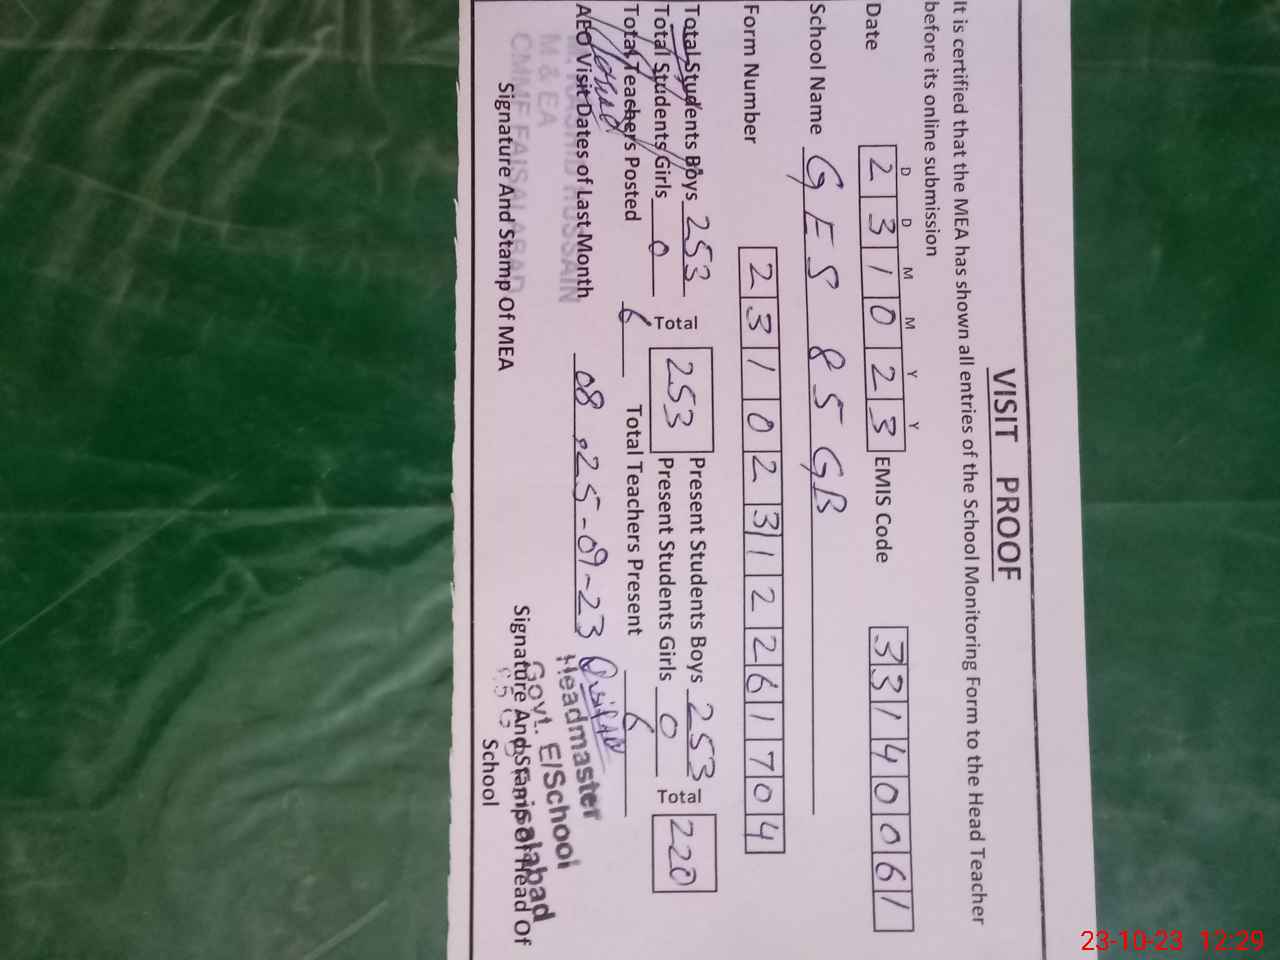 VISIT PROOF
It is certified that the MEA has shown all entries of the School Monitoring Form to the Head Teacher
before its online submission
D D M M Y Y
Date 2 3 1 0 2 3 EMIS Code 3 3 1 4 0 0 6 1
School Name GES 85 GB
Form Number 2 3 1 0 2 3 1 2 2 6 1 7 0 4
Total Students Boys 253 Total 253 Present Students Boys 253 Total 220
Total Students Girls 0 Present Students Girls 0
Total Teachers Posted 6 Total Teachers Present 6
AEO Visit Dates of Last Month 08, 25-09-23
RASHID HUSSAIN
M & EA
CMMF FAISALABAD
Signature And Stamp Of MEA
Headmaster
Govt. E/School
85 G
Signature And Stamp Of Head Of
School
23-10-23 12:29